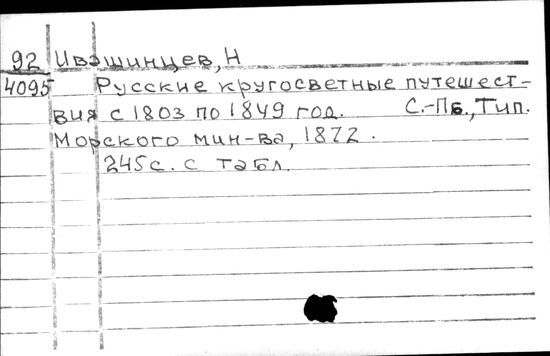 92 Ивашинцев, Н
4095 Русские кругосветные путешест-
вия с 1803 по 1849 год. С.-Пб., Тип.
Морского мин-ва, 1872.
245с. с табл.